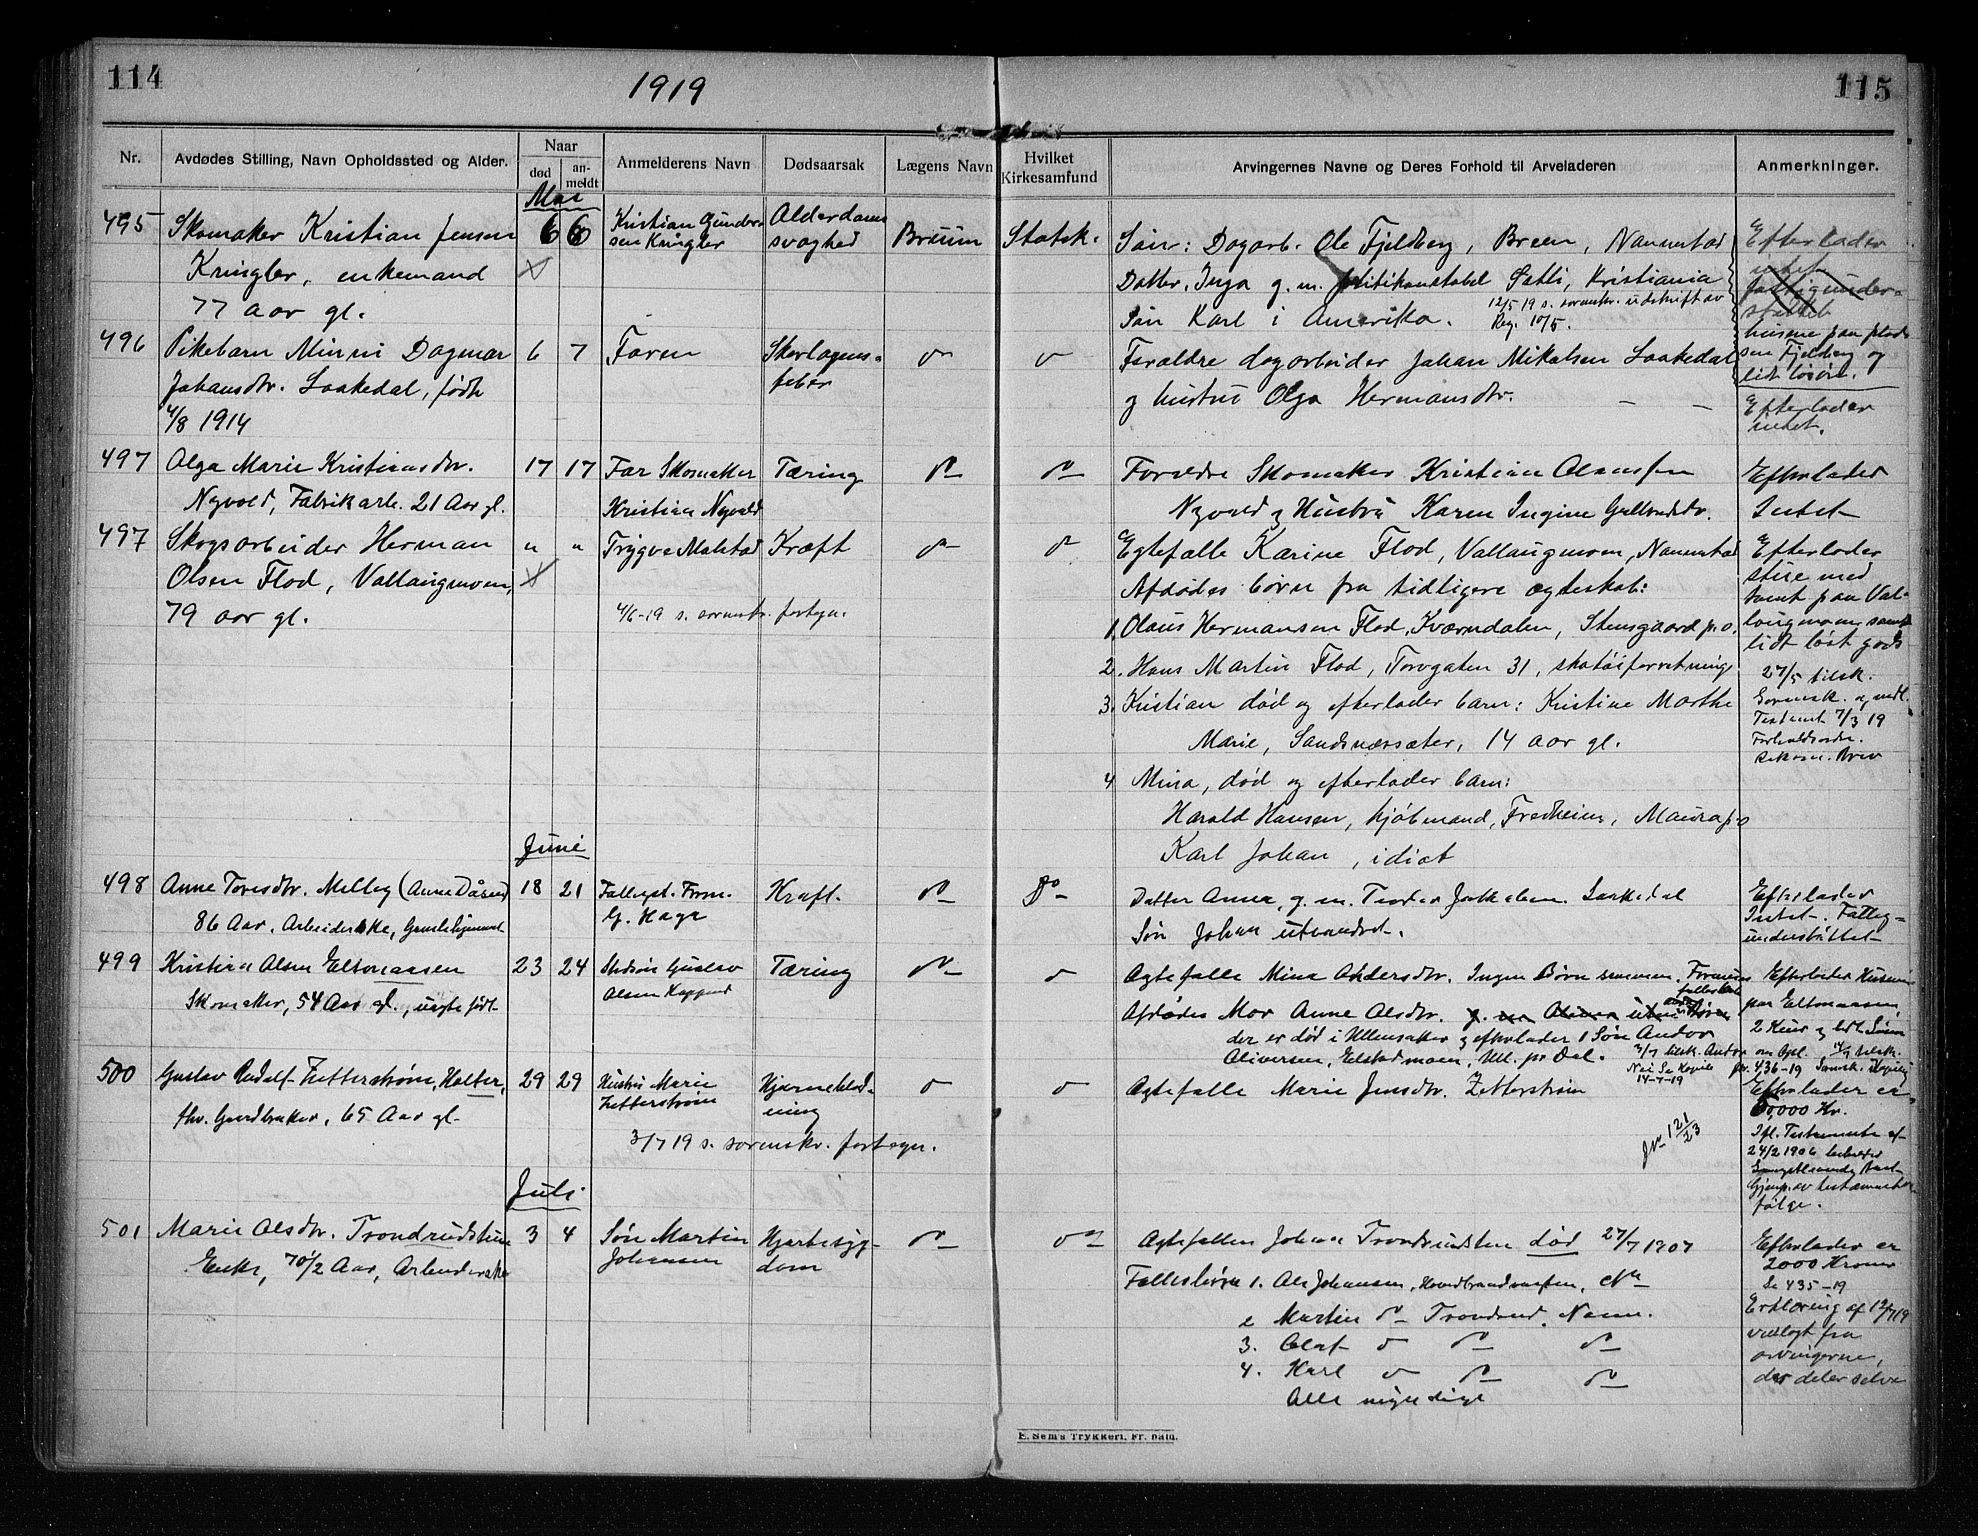 114
1919
115
Nr.
Avdødes Stilling, Navn Opholdssted og Alder.
Naar
død
an-
meldt
Anmelderens Navn
Dødsaarsak
Lægens Navn
Hvilket
Kirkesamfund
Arvingernes Navne og Deres Forhold til Arveladeren
Anmerkninger.
Mai
495
Skomaker Kristian Jensen
Kringler, enkemand
77 aar gl.
6 6
Kristian Gunder-
sen Kringler
Alderdoms
svaghed
Bruun
Statsk.
Søn: Dagarb. Ole Fjeldberg, Breen, Nannestad
Datter, Inga g. m. politikonstabel Sætli, Kristiania
Søn Karl i Amerika.
12/5 19 s. sorenskr. udskrift av
Reg. 10/5.
Efterlader
intet
fattigunder-
støttet
husene paa plads
sen Fjeldberg og
lidt løsøre.
496
Pikebarn Minni Dagmar
Johansdtr. Laakedal, født
4/8 1914
6 7
Faren
Skarlagens-
feber
Forældre dagarbeider Johan Mikalsen Laakedal
og hustru Olga Hermansdtr.
Efterlader
intet.
497
Olga Marie Kristiansdtr.
Nyvold, Fabrikarb. 21 Aar gl.
17 17
Far Skomaker
Kristian Nyvold
Tæring
Forældre Skomaker Kristian Olaussen
Nyvold og Hustru Karen Ingine Gulbrandsdtr.
Efterlader
Intet
497
Skogsarbeider Herman
Olsen Flod, Vallaugmoen,
79 aar gl.
" "
Trygve Malstad
Kræft
4/6-19 s. sorenskr. fortegn.
Egtefælle Karine Flod, Vallaugmoen, Nannestad
Afdødes børn fra tidligere ægteskab:
1. Olaus Hermansen Flod, Kværndalen, Stensgaard p.o.
2. Hans Martin Flod, Torvgaten 31, skotøiforretning
3. Kristian død og efterlader barn: Kristine Marthe
Marie, Sandsnæssæter, 14 aar gl.
4 Mina, død og efterlader barn:
Harald Hansen, kjøbmand, Fredheim, Maura p.o
Karl Johan, idiot
Efterlader
stue med
tomt paa Val-
laugmoen samt
lidt løst gods
27/5 tilsk.
Sorensk. og medl.
Testamt 7/3 19
Juni
498
Anne Toresdtr. Melby (Anne Dåsen)
86 Aar, Arbeiderske, Gamlehjemmet
18 21
Fattigst. Form.
G. Haga
Kræft.
Do
Datter Anna, g. m. Teodor Jakobsen Laakedal
Søn Johan utvandret.
Efterlader
Intet. Fattig-
understøttet
499
Kristian Olsen Eltonaasen
Skomaker, 54 Aar gl., uegte født
23 24
Stedsøn Gustav
Olsen Kopperud
Tæring
Ægtefælle Mina Andersdtr. Ingen Børn sammen.
Afdødes Mor Anne Olsdtr.
der er død i Ullensaker og efterlader 1 Søn Andor
Oliversen, Elstadmoen, Ull. pr Dal.
3/7 tilsk. Andor
14-7-19
Efterlader Husene
paa Eltonaasen,
2 Kuer og lidt
436-19
500
Gustav Rudolf Zetterstrøm, Holter,
fhv. Gaardbruker, 65 Aar gl.
29 29
Hustru Marie
Zetterstrøm
Hjerneblød-
ning
3/7 19 s. sorenskr. fortegn.
Ægtefælle Marie Jensdtr. Zetterstrøm
Jr 121/23
Efterlader ca
50,000 Kr.
Ifl. Testamente af
24/2 1906
Gjenp. av testamentet
følge.
Juli
501
Marie Olsdtr. Trondrudstuen
Enke, 70 1/2 Aar, Arbeiderske
3 4
Søn Martin
Johansen
Hjertesyg-
dom
Ægtefællen Johan Trondrudstuen død 27/7 1907
Fællesbørn 1. Ole Johansen,
2 Martin do Trondrud, Nann.
3. Olaf do do do
4. Karl do do do
Alle myndige
Efterlader ca
2000 Kroner
Se 435-19
Erklæring af 12/7 19
vedlagt fra
arvingerne,
der deler selve
E. Sem's Trykkeri, Fr.hald.